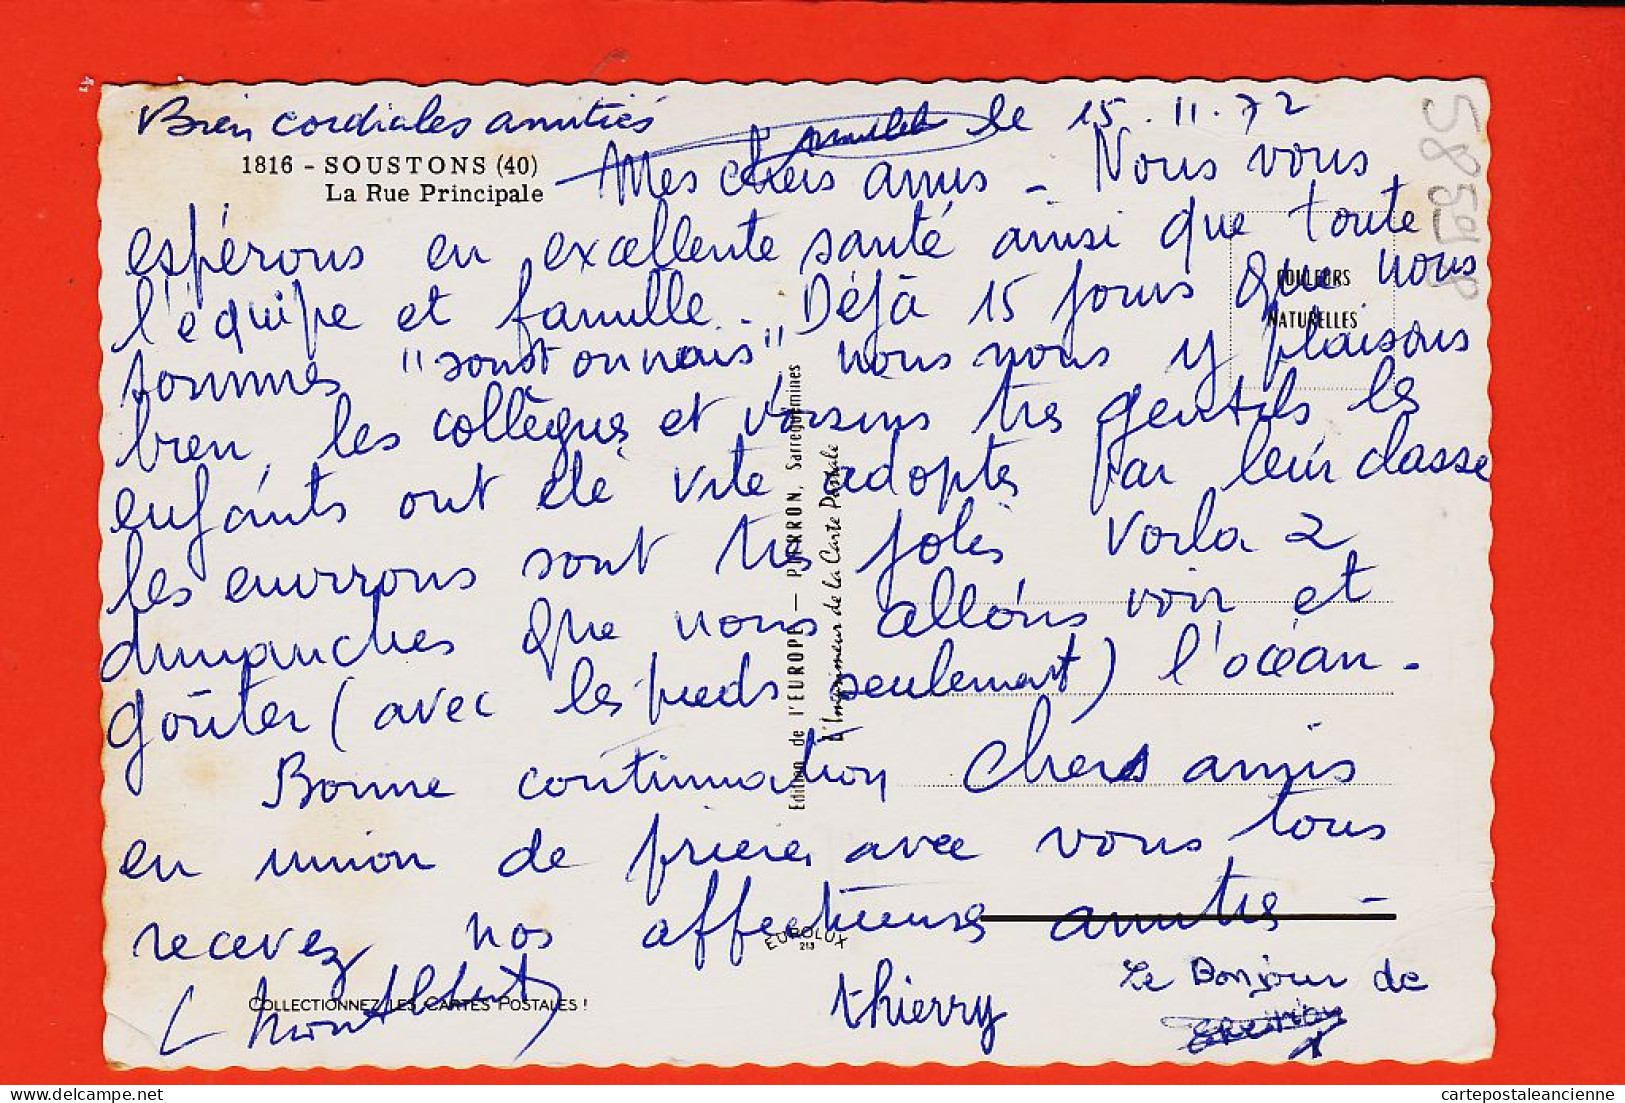 Bien cordiales amitiés
le 15.11.72
1816 - SOUSTONS (40)
La Rue Principale
Mes chers amis - Nous vous
espérons en excellente santé ainsi que toute
l'équipe et famille. Déjà 15 jours que nous
sommes "soustonnais" nous nous y plaisons
bien, les collègues et voisins très gentils les
enfants ont été vite adoptés par leur classe
les environs sont très jolis Voila 2
dimanches que nous allons voir et
goûter (avec les pieds seulement) l'océan -
Bonne continuation chers amis
en union de prières avec vous tous
recevez nos affectueuses amitiés -
thierry
Le Bonjour de
COULEURS
NATURELLES
Edition de l'EUROPE — PIERRON, Sarreguemines
L'Imprimeur de la Carte Postale
EUROLUX
213
COLLECTIONNEZ LES CARTES POSTALES !
cartepostaleancienne